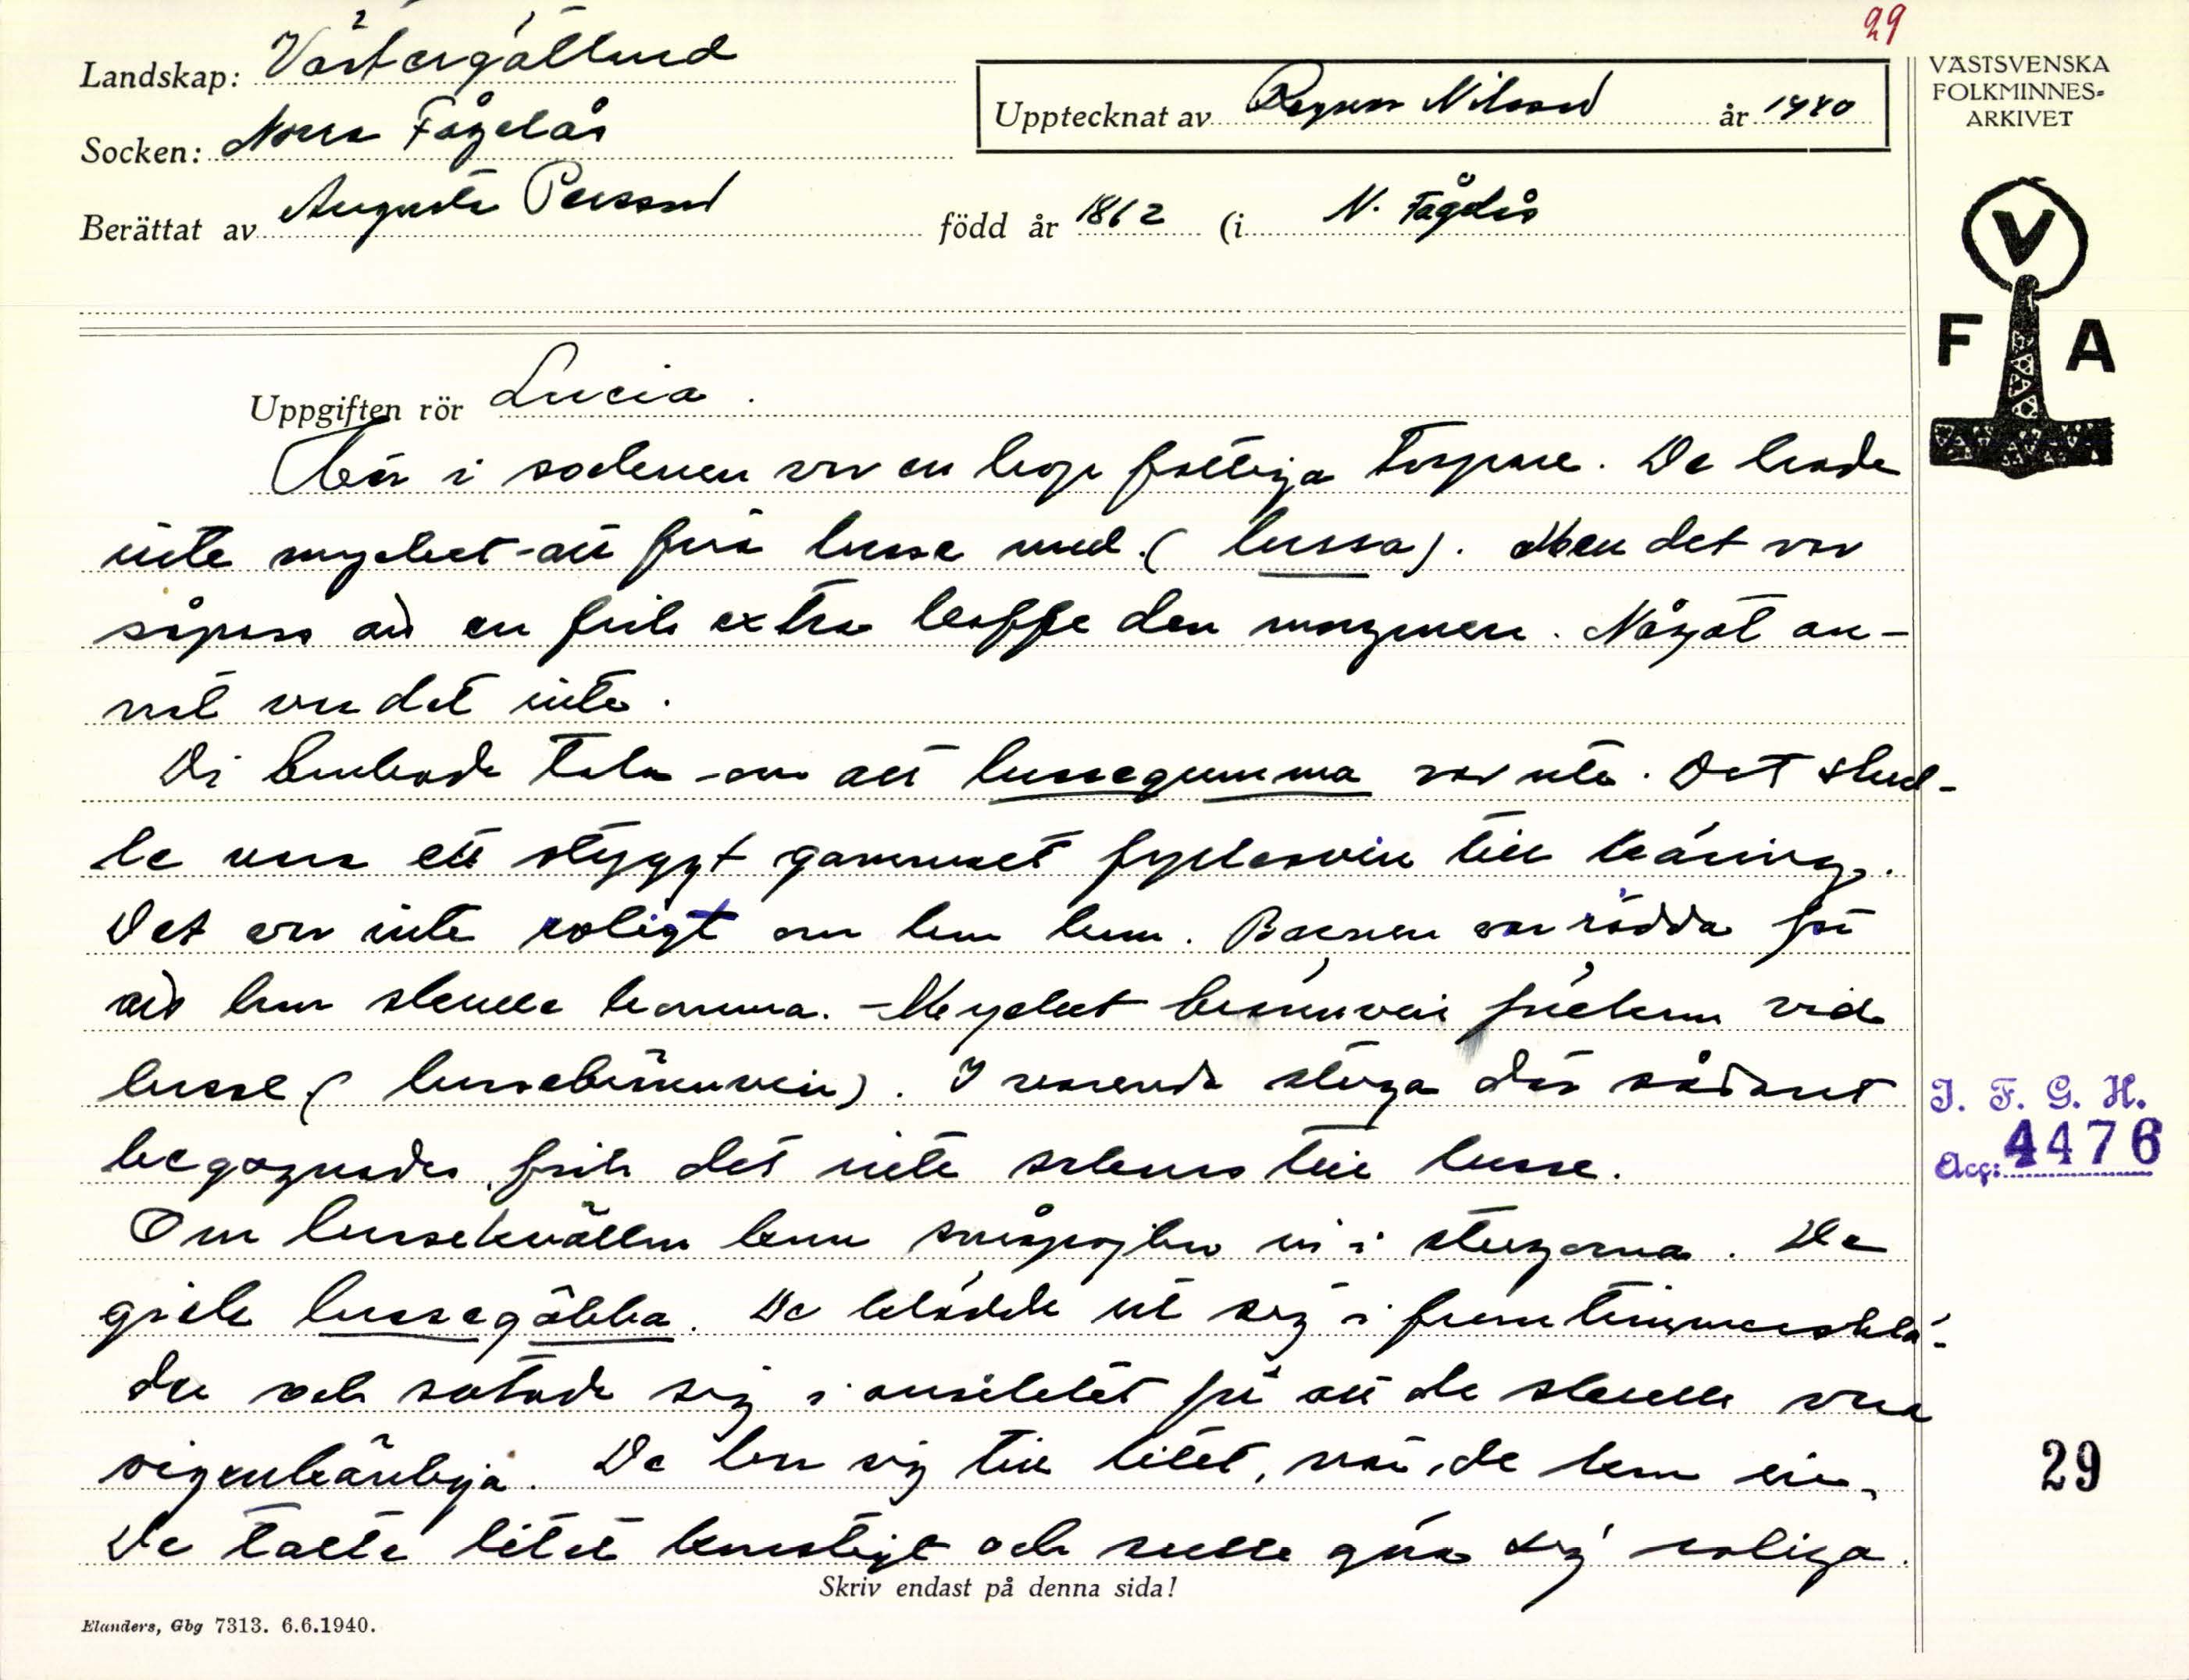 29
Landskap: Västergötland
Socken: Norra Fågelås
Upptecknat av Ragnar Nilsson år 1940
Berättat av Augusta Persson född år 1862 (i N. Fågelås
VÄSTSVENSKA
FOLKMINNES-
ARKIVET
V
F A
Uppgiften rör Lucia.
Här i socknen var en hop fattiga torpare. De hade
inte mycket att fira lusse med. (lussa). Men det var
såpass att en fick extra kaffe den morgonen. Något an-
nat var det inte.
Di brukade tala om att lussegumma var ute. Det skul-
le vara ett styggt gammalt fyllesvin till käring.
Det var inte roligt om hon kom. Barnen var rädda för
att hon skulle komma. Mycket brännvin fick en vid
lusse (lussebrännvin). I varenda stuga där sådant
begagnades, fick det inte saknas till lusse.
Om lussekvällen kom småpojkar in i stugorna. De
gick lussegöbba. De klädde ut sig i fruntimmersklä-
der och sotade sig i ansiktet för att de skulle vara
oigenkänliga. De bar sig till litet, när de kom in,
De talte litet konstigt och skulle göra sig roliga.
J. F. G. H.
Acc: 4476
29
Skriv endast på denna sida!
Elanders, Gbg 7313. 6.6.1940.